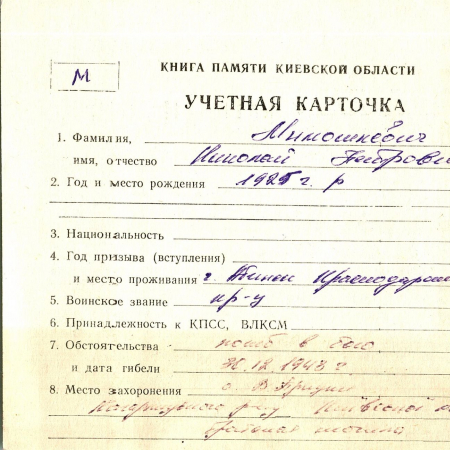 М
КНИГА ПАМЯТИ КИЕВСКОЙ ОБЛАСТИ
УЧЕТНАЯ КАРТОЧКА
1. Фамилия, Мимошкевич
имя, отчество Николай Петрови
2. Год и место рождения 1925 г. р
3. Национальность
4. Год призыва (вступления)
и место проживания г. Краснодарск
5. Воинское звание кр-ц
6. Принадлежность к КПСС, ВЛКСМ
7. Обстоятельства погиб в бою
и дата гибели 30.12.1943 г.
8. Место захоронения с.
р-ну Киевской
братская могила